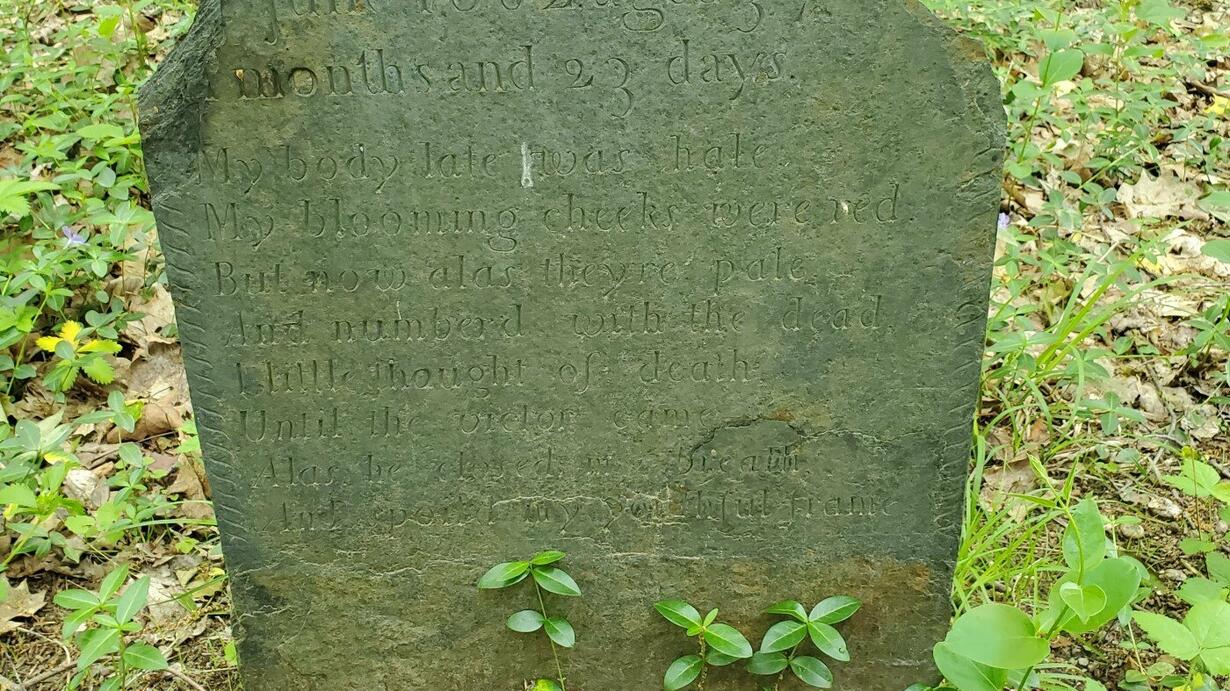 June 1802 aged
months and 23 days.
My body late was hale.
My blooming cheeks were red.
But now alas theyre pale.
And numberd with the dead.
I little thought of death.
Until the victor came
Alas he closed my breath.
And spoild my youthful frame